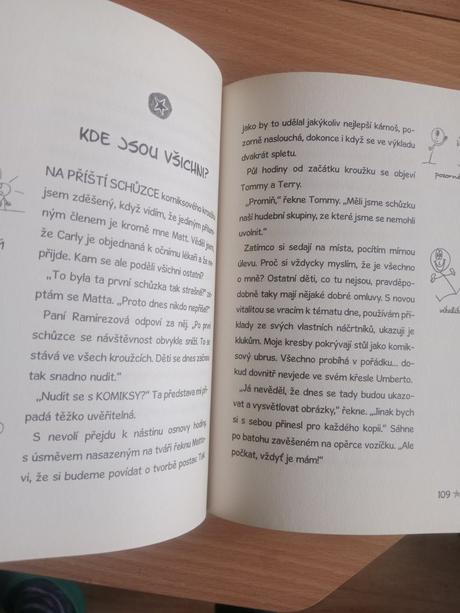 KDE JSOU VŠICHNI?
NA PŘÍŠTÍ SCHŮZCE komiksového kroužku
jsem zděšený, když vidím, že jediným přítom-
ným členem je kromě mne Matt. Věděl jsem,
že Carly je objednaná k očnímu lékaři a že ne-
přijde. Kam se ale poděli všichni ostatní?
„To byla ta první schůzka tak strašná?“ ze-
ptám se Matta. „Proto dnes nikdo nepřišel?“
Paní Ramirezová odpoví za něj. „Po první
schůzce se návštěvnost obvykle sníží. To se
stává ve všech kroužcích. Děti se dnes začnou
tak snadno nudit.“
„Nudit se s KOMIKSY?“ Ta představa mi při-
padá těžko uvěřitelná.
S nevolí přejdu k nástinu osnovy hodiny,
s úsměvem nasazeným na tváři řeknu Matto-
vi, že si budeme povídat o tvorbě postav. Tak
jako by to udělal jakýkoliv nejlepší kárnoš, po-
zorně naslouchá, dokonce i když se ve výkladu
dvakrát spletu.
Půl hodiny od začátku kroužku se objeví
Tommy a Terry.
„Promiň,“ řekne Tommy. „Měli jsme schůzku
naší hudební skupiny, ze které jsme se nemohli
uvolnit.“
Zatímco si sedají na místa, pocítím mírnou
úlevu. Proč si vždycky myslím, že je všechno
o mně? Ostatní děti, co tu nejsou, pravděpo-
dobně taky mají nějaké dobré omluvy. S novou
vitalitou se vracím k tématu dne, používám pří-
klady ze svých vlastních náčrtníků, ukazuji je
klukům. Moje kresby pokrývají stůl jako komik-
sový ubrus. Všechno probíhá v pořádku... do-
kud dovnitř nevjede ve svém křesle Umberto.
„Já nevěděl, že dnes tady budou ukazo-
vat a vysvětlovat obrázky,“ řekne. „Jinak bych
si s sebou přinesl pro každého kopii.“ Sáhne
po batohu zavěšeném na opěrce vozíčku. „Ale
počkat, vždyť je mám!“
109